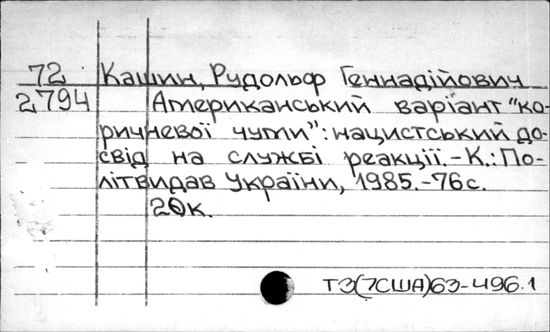 72 Кашин, Рудольф Геннадійович
2794 Американський варіант "ко-
ричневої чуми": нацистський до-
свід на службі реакції. - К.: По-
літвидав України, 1985. - 76 с.
20к.
Т3(7США)63-496.1